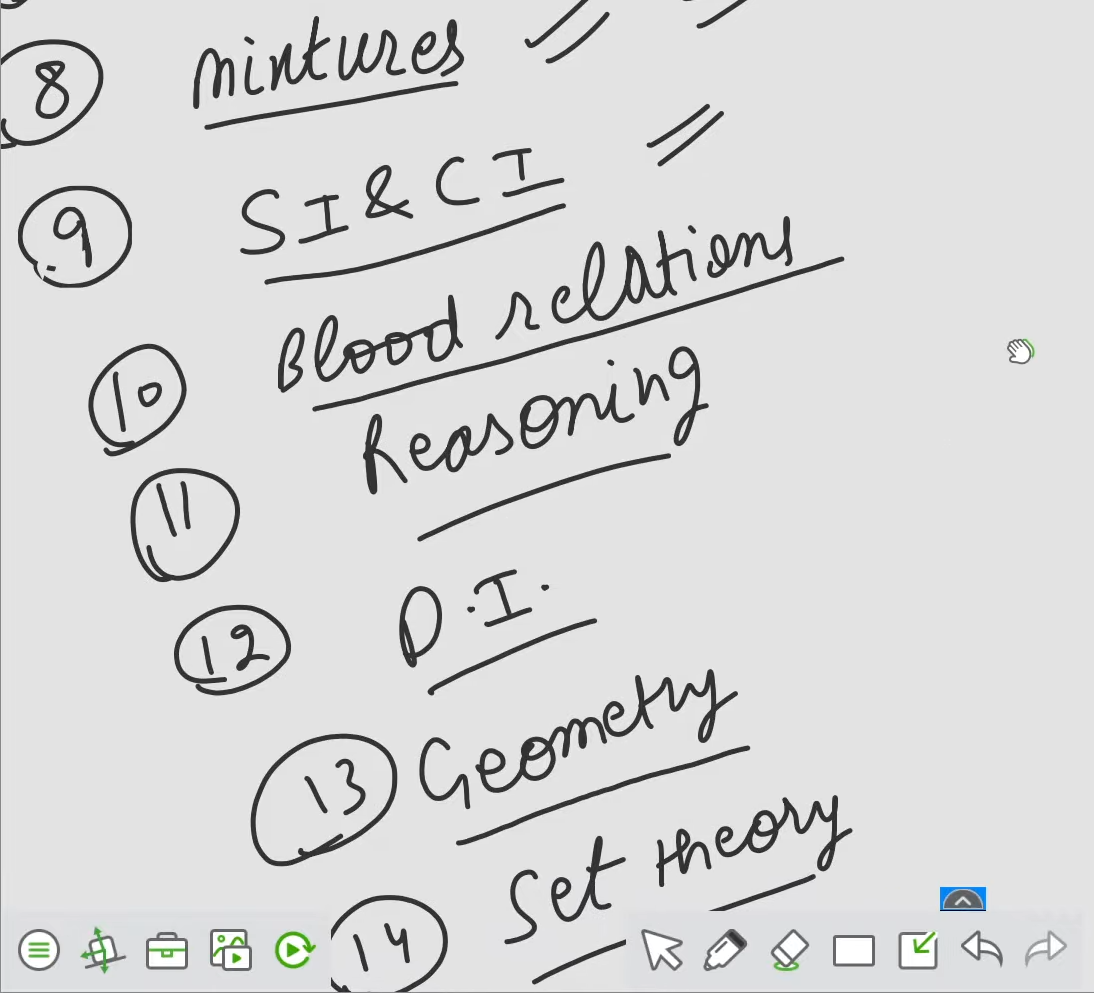 8 mixtures
9 SI & CI
10 Blood relations
11 Reasoning
12 D.I.
13 Geometry
14 Set theory